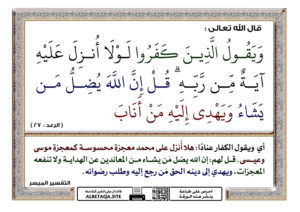 قال الله تعالى :
وَيَقُولُ الَّذِينَ كَفَرُوا لَوْلَا أُنزِلَ عَلَيْهِ
آيَةٌ مِّن رَّبِّهِ ۗ قُلْ إِنَّ اللَّهَ يُضِلُّ مَن
يَشَاءُ وَيَهْدِي إِلَيْهِ مَنْ أَنَابَ
(الرعد : ٢٧)
أي ويقول الكفار عنادًا: هلا أُنزل على محمد معجزة محسوسة كمعجزة موسى
وعيسى. قل لهم: إن الله يضل مَن يشاء من المعاندين عن الهداية ولا تنفعه
المعجزات، ويهدي إلى دينه الحق مَن رجع إليه وطلب رضوانه.
التفسير الميسر
ALBETAQA.SITE